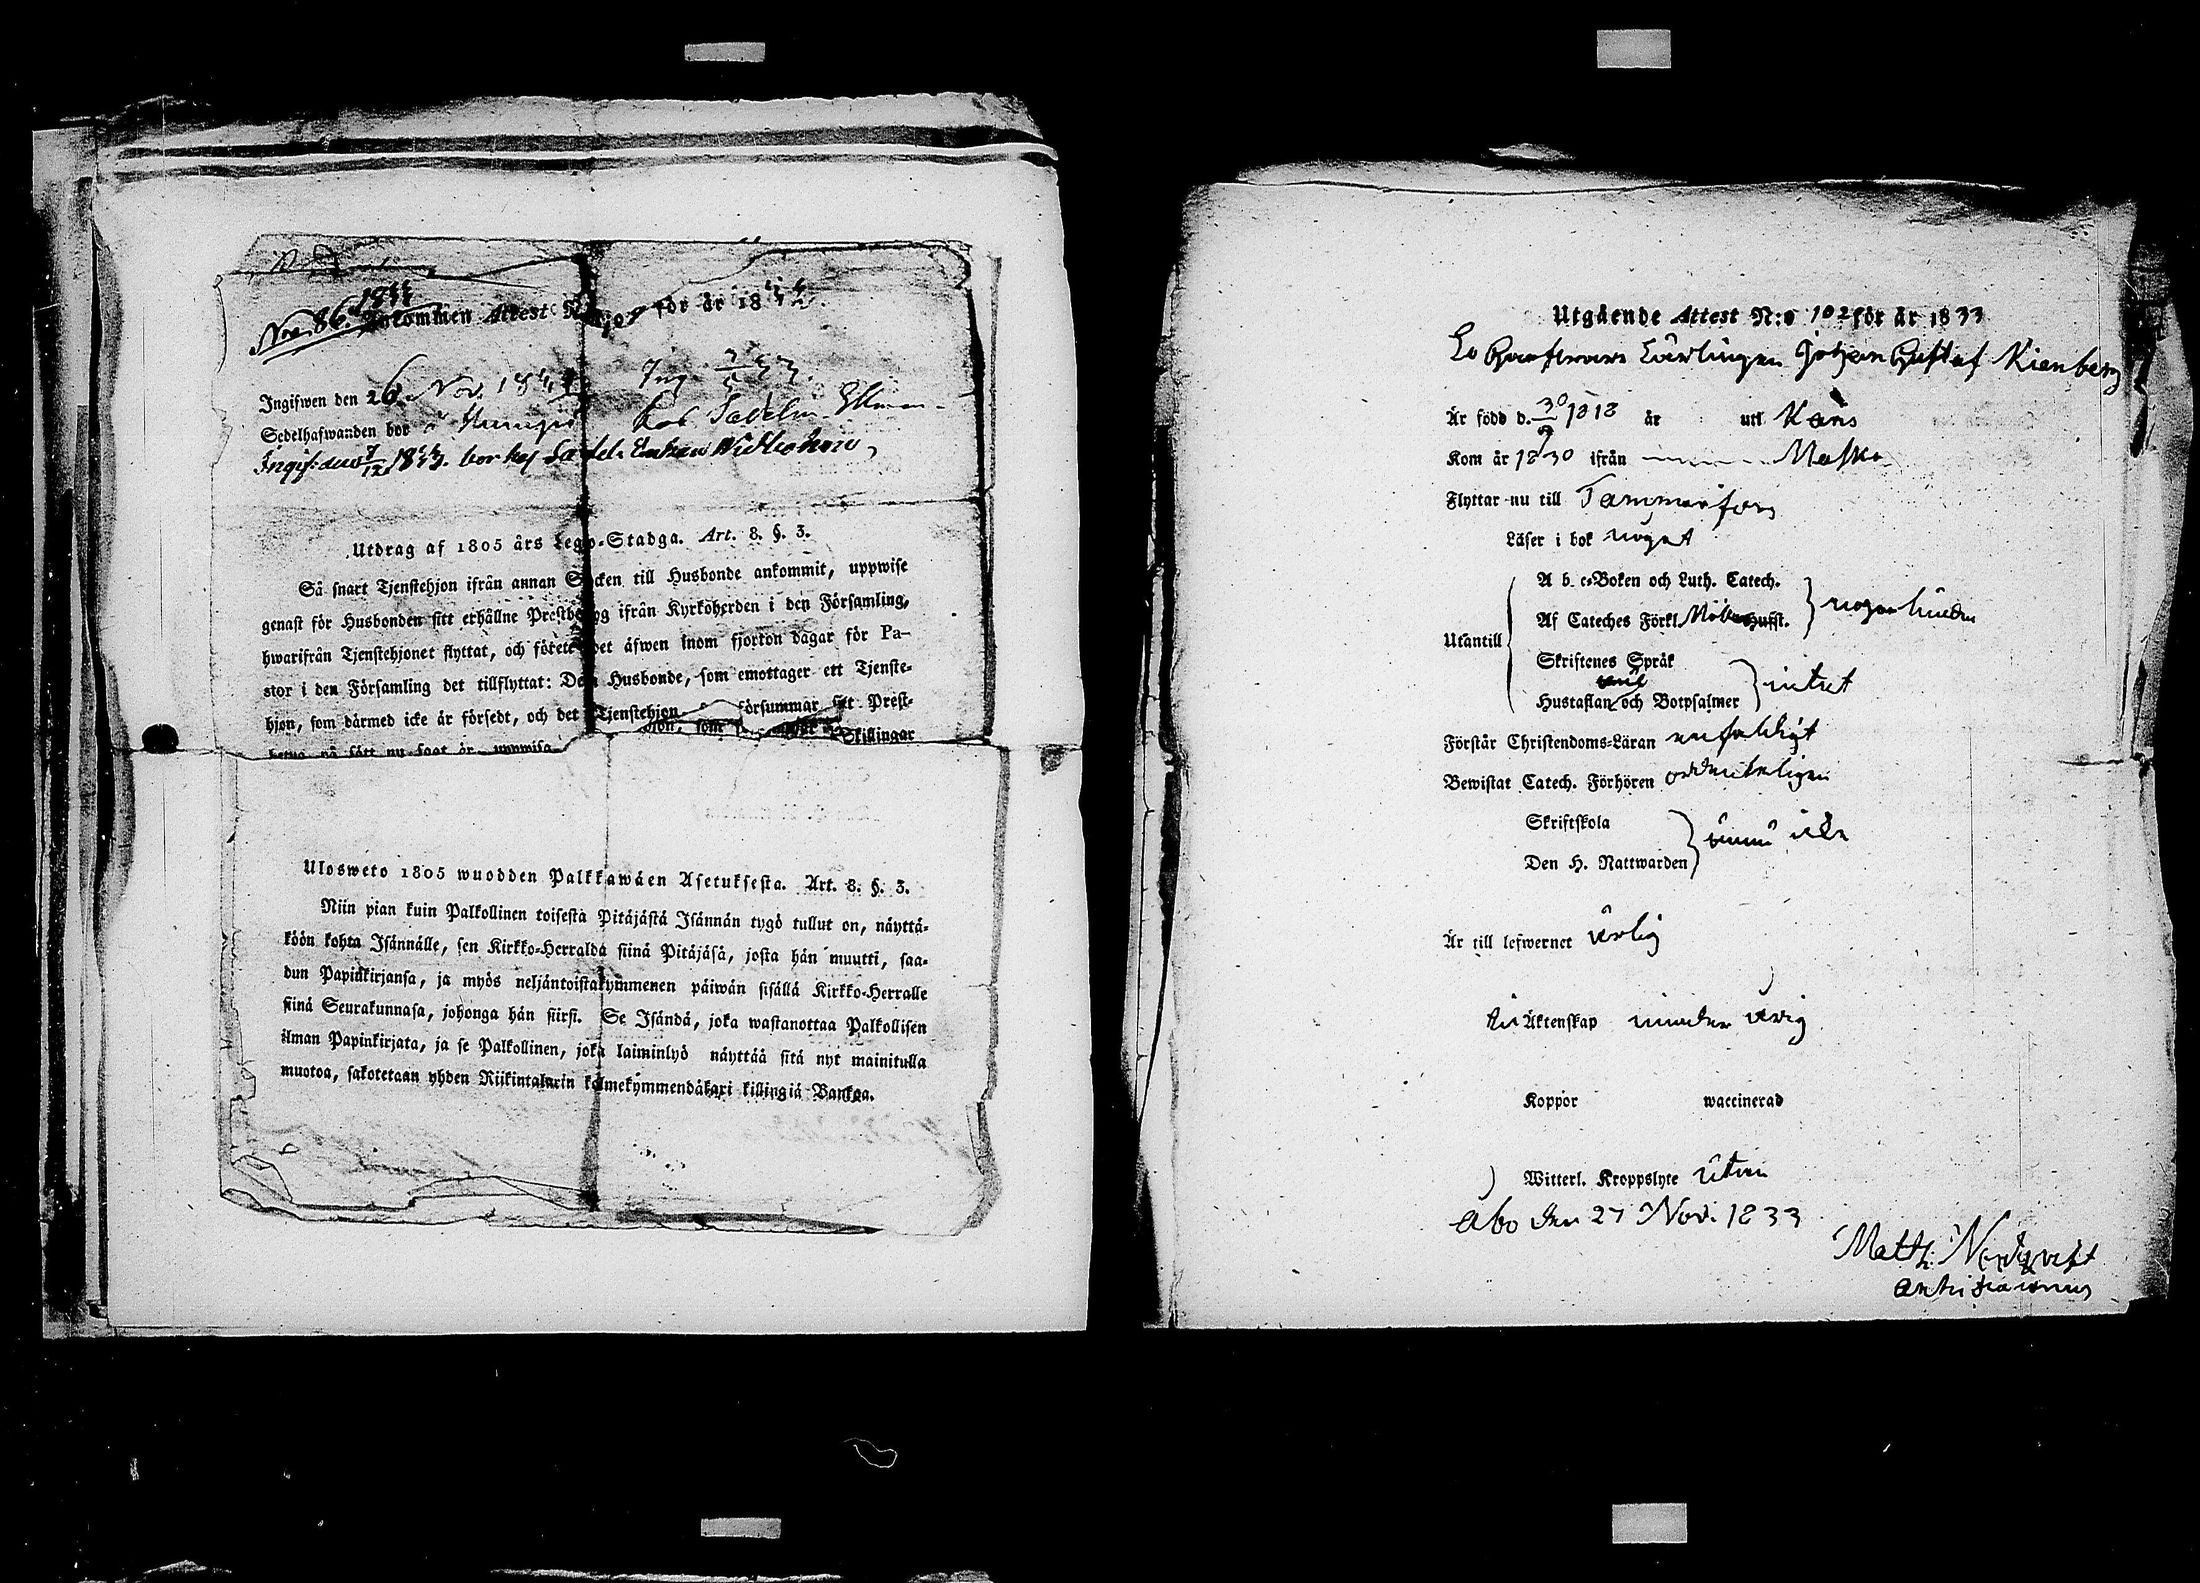 Nro 86. 1833
Ankommen Attest N:o för år 1833.
Ingifwen den 26 Nov. 1833
Sedelhafwanden bor
Ingif: den 7/12 1833. bor hos
Utdrag af 1805 års Lego-Stadga. Art. 8. §. 3.
Så snart Tjenstehjon ifrån annan Socken till Husbonde ankommit, uppwise
genast för Husbonden sitt erhållne Prestbetyg ifrån Kyrkoherden i den Församling,
hwarifrån Tjenstehjonet flyttat, och förete det äfwen inom fjorton dagar för Pa-
stor i den Församling det tillflyttat: Den Husbonde, som emottager ett Tjenste-
hjon, som därmed icke är försedt, och det Tjenstehjon, försummar sitt Prest-
betyg på sätt nu sagt är uppwisa Skillingar
Ulosweto 1805 wuodden Palkkawäen Asetuksesta. Art. 8. §. 3.
Niin pian kuin Palkollinen toisesta Pitäjästä Isännän tygö tullut on, näyttä-
köön kohta Isännälle, sen Kirkko-Herralda siinä Pitäjäsä, josta hän muutti, saa-
dun Papinkirjansa, ja myös neljäntoistakymmenen päiwän sisällä Kirkko-Herralle
siinä Seurakunnasa, johonga hän siirsi. Se Isändä, joka wastanottaa Palkollisen
ilman Papinkirjata, ja se Palkollinen, joka laiminlyö näyttää sitä nyt mainitulla
muotoa, sakotetaan yhden Riikintalarin kolmekymmendäkaxi killingiä Bankoa.
Utgående Attest N:o 102 för år 1833
Lärlingen Johan Gustaf Kienberg
Är född d. 30/9 1818 år uti Kans
Kom år 1830 ifrån Masko
Flyttar nu till Tammerfors
Läser i bok något
A b c-Boken och Luth. Catech.
Af Cateches Förkl. Möllers Hufst. } någorlunda
Utantill
Skriftenes Språk
Hustaflan och Botpsalmer } intet
Förstår Christendoms-Läran enfaldigt
Bewistat Catech. Förhören ordenteligen
Skriftskola
Den H. Nattwarden } ännu icke
Är till lefwernet ärlig
till Äktenskap minderårig
Koppor waccinerad
Witterl. Kroppslyte utan
Åbo den 27 Nov. 1833
Matth. Nordqvist